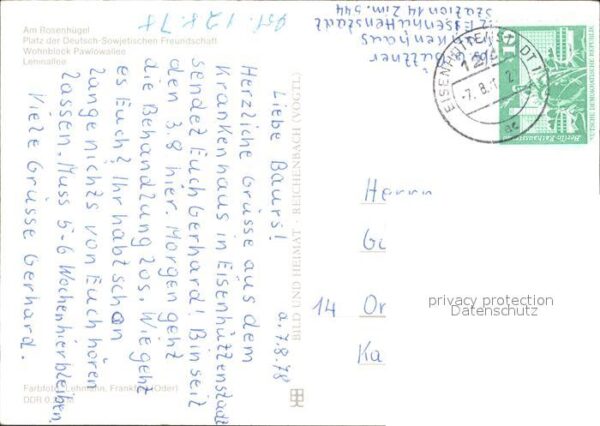 Am Rosenhügel
Platz der Deutsch-Sowjetischen Freundschaft
Wohnblock Pawlowallee
Leninallee
12.8.78
Krankenhaus
122 Eisenhüttenstadt
Station 14 Zim. 544
EISENHÜTTENSTADT
122
-7. 8.
ac
10
Berlin
DEUTSCHE DEMOKRATISCHE REPUBLIK
a. 7.8.78
Liebe Baurs!
Herzliche Grüsse aus dem
Krankenhaus in Eisenhüttenstadt
sendet Euch Gerhard! Bin seit
den 3.8 hier. Morgen geht
die Behandlung los. Wie geht
es Euch? Ihr habt schon
lange nichts von Euch hören
lassen. Muss 5-6 Wochen hier bleiben.
Viele Grüsse Gerhard.
BILD UND HEIMAT · REICHENBACH (VOGTL)
Herrn
Gi
14 Or
Ka
privacy protection
Datenschutz
Farbfoto: Lehmann, Frankfurt (Oder)
DDR